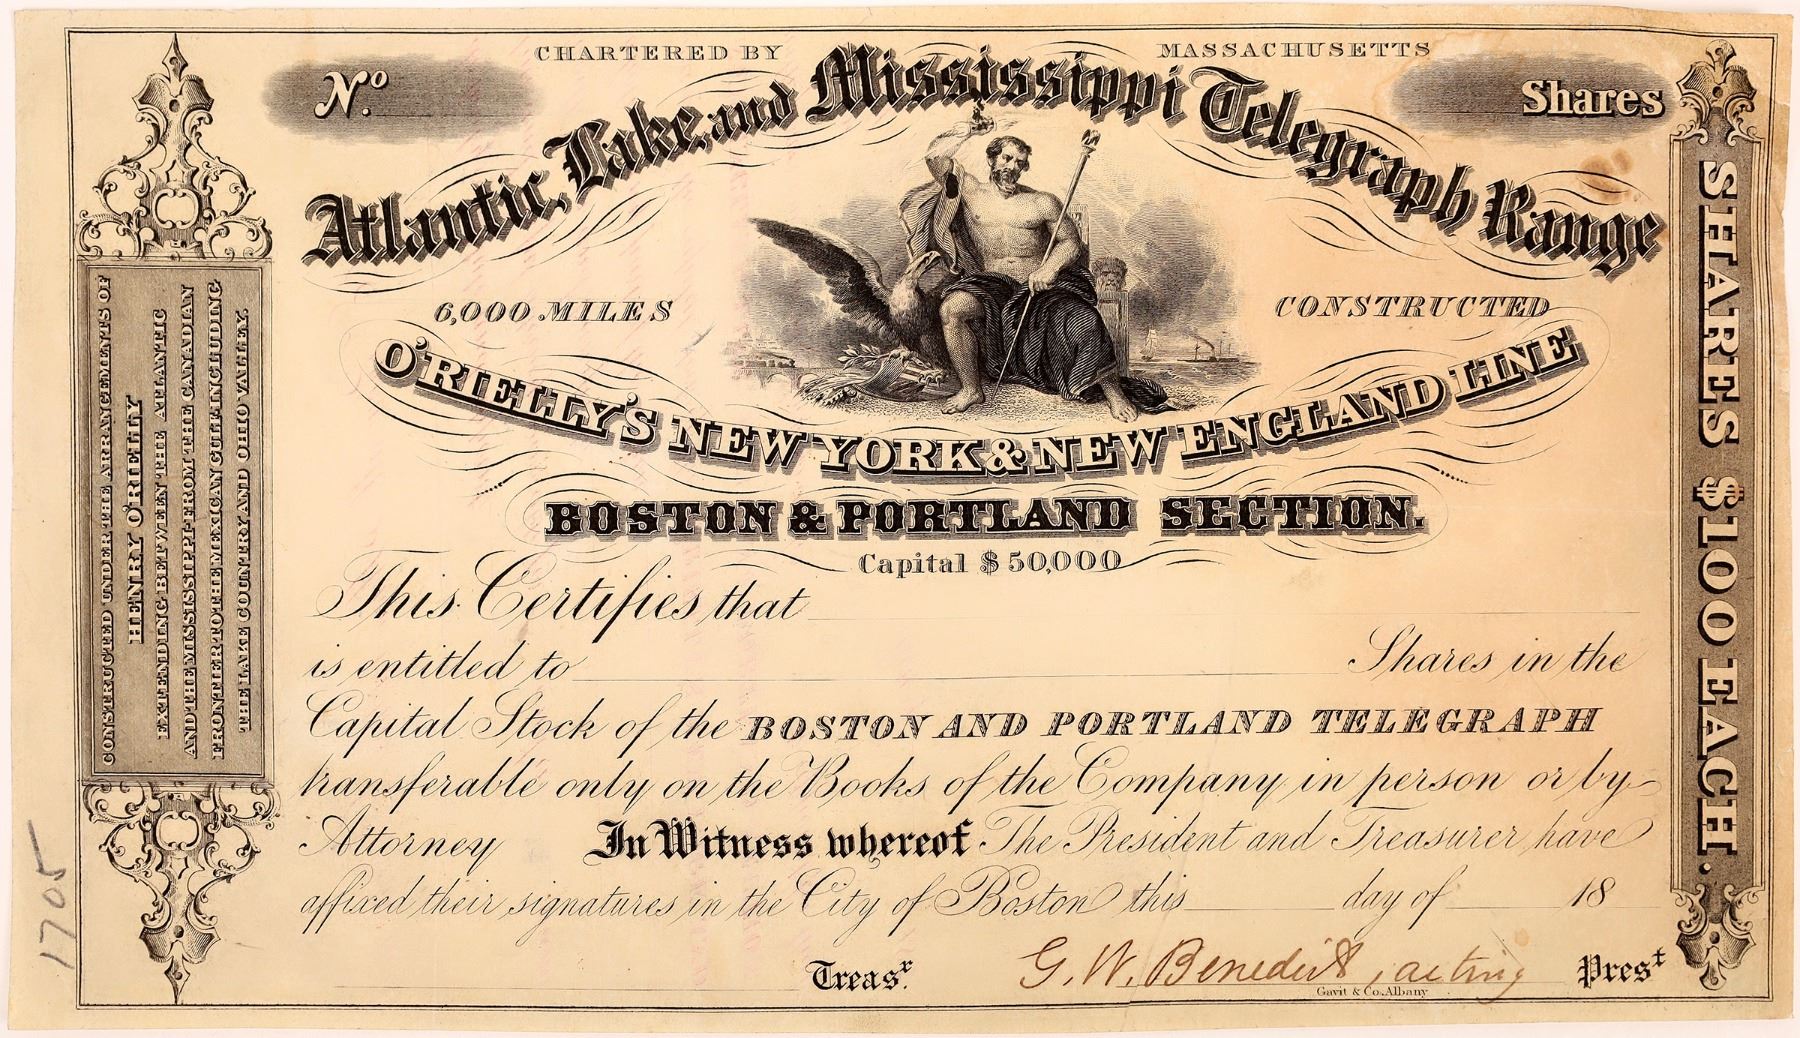 CHARTERED BY MASSACHUSETTS
No.
Shares
Atlantic, Lake, and Mississippi Telegraph Range
6,000 MILES CONSTRUCTED
O'RIELLY'S NEW YORK & NEW ENGLAND LINE
BOSTON & PORTLAND SECTION.
Capital $50,000
This Certifies that
is entitled to Shares in the
Capital Stock of the BOSTON AND PORTLAND TELEGRAPH
transferable only on the Books of the Company in person or by
Attorney In Witness whereof The President and Treasurer have
affixed their signatures in the City of Boston this day of 18
Treasr. G. W. Benedict, acting Prest
Gavit & Co. Albany
CONSTRUCTED UNDER THE ARRANGEMENTS OF
HENRY O'RIELLY
EXTENDING BETWEEN THE ATLANTIC
AND THE MISSISSIPPI FROM THE CANADIAN
FRONTIER TO THE MEXICAN GULF INCLUDING
THE LAKE COUNTRY AND OHIO VALLEY.
SHARES $100 EACH.
1705